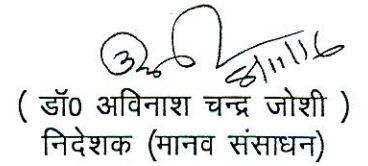 8/11/16
( डॉ0 अविनाश चन्द्र जोशी )
निदेशक (मानव संसाधन)